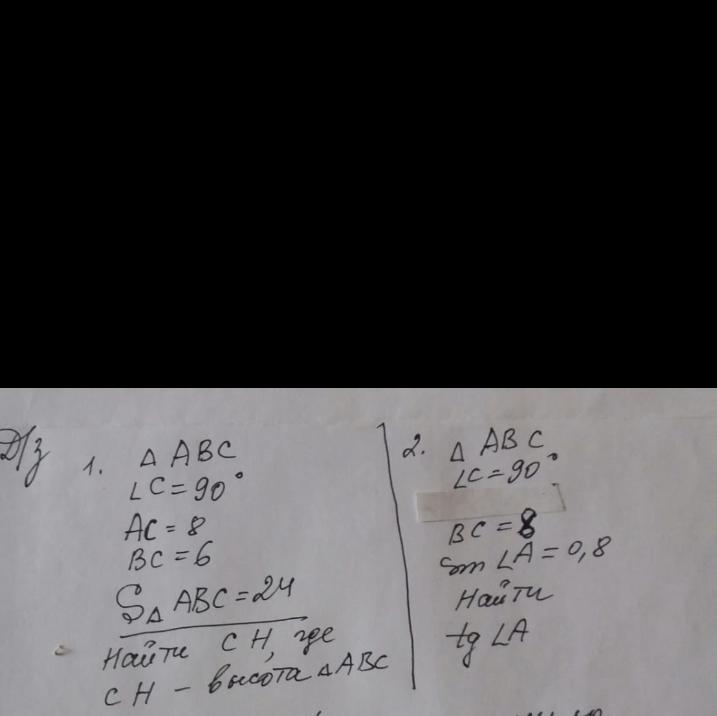 Д/з
1. △ ABC
∠C = 90°
AC = 8
BC = 6
S△ ABC = 24
Найти CH, где
CH – высота △ABC
2. △ ABC
∠C = 90°
BC = 8
sin ∠A = 0,8
Найти
tg ∠A